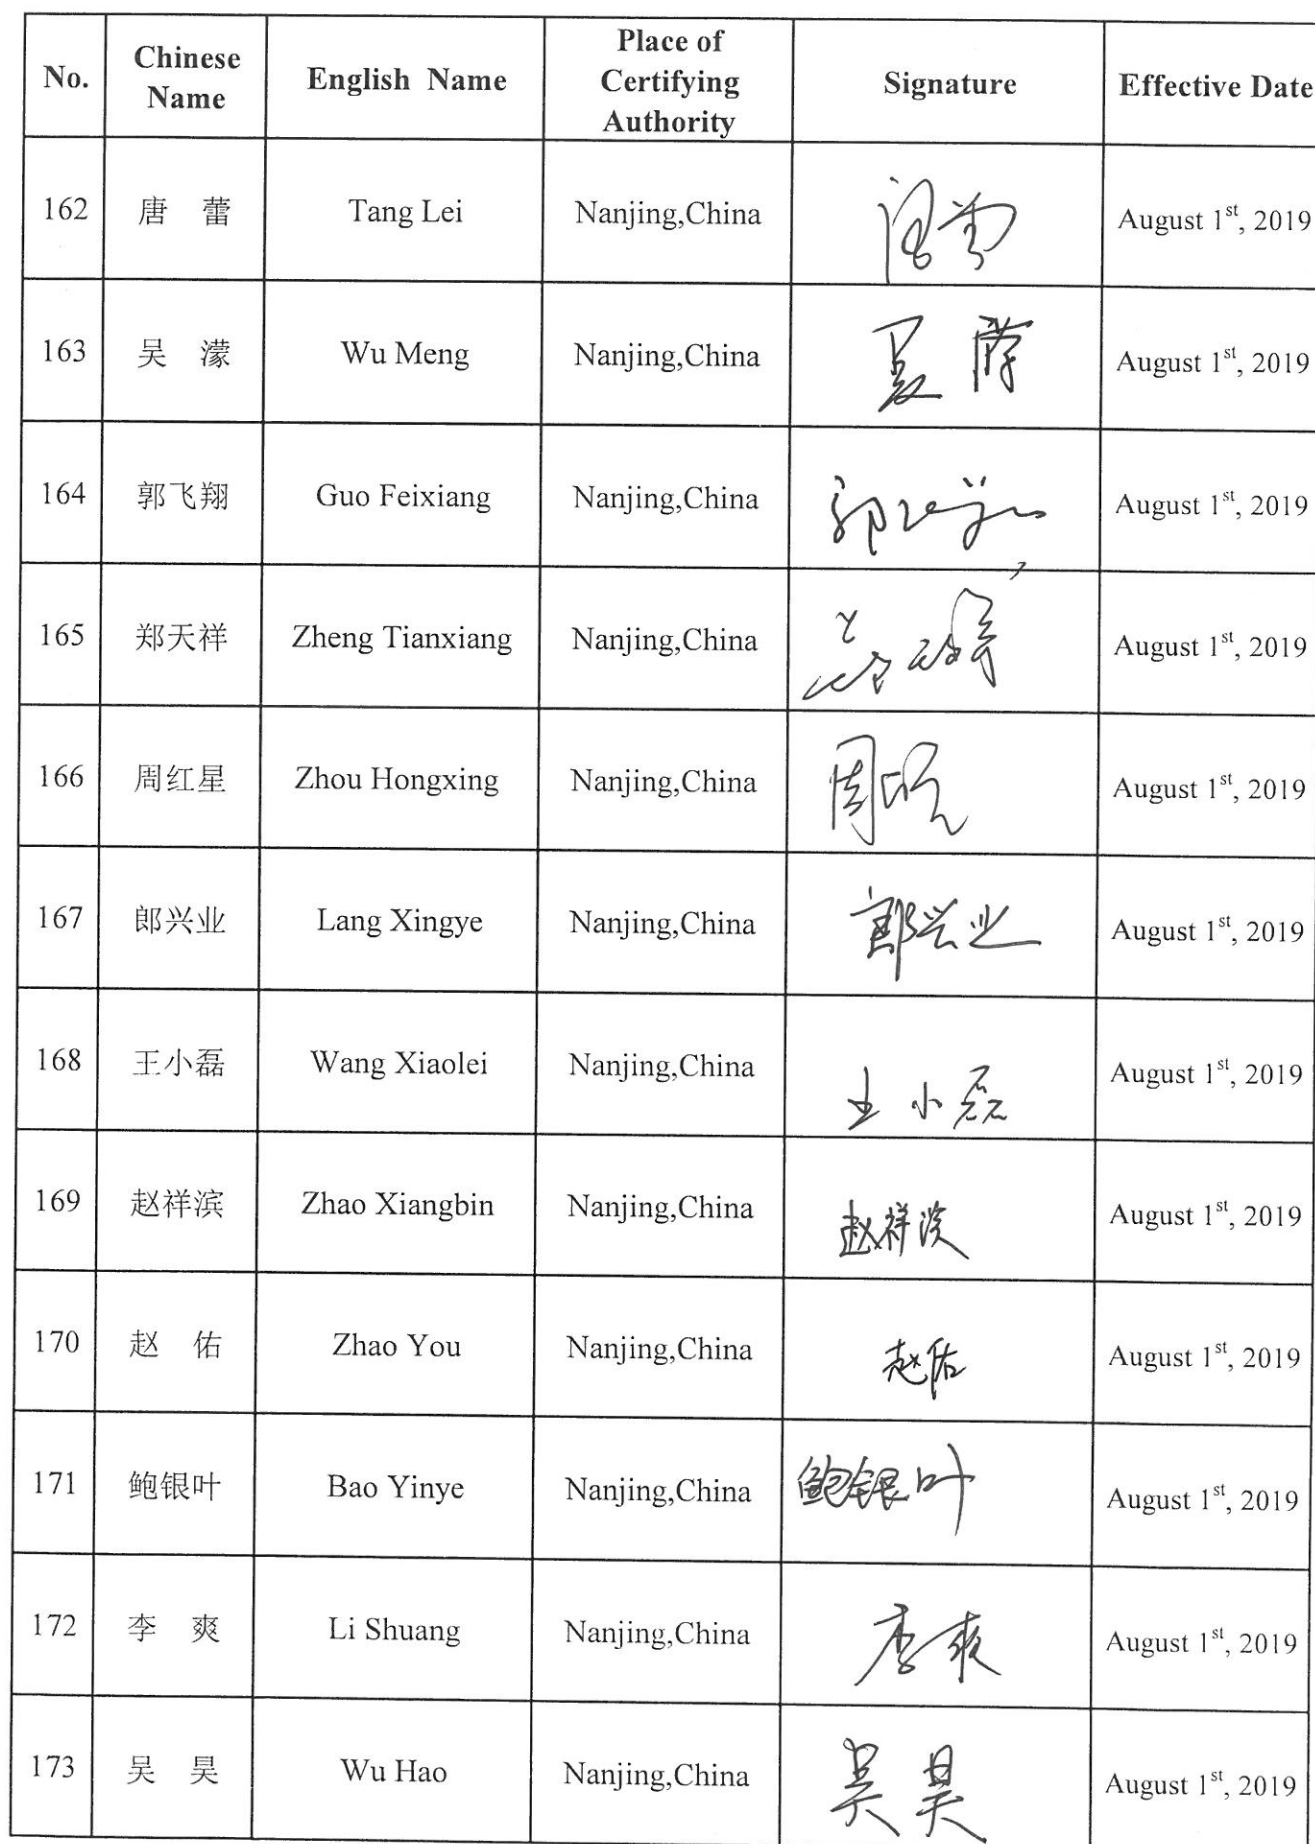 No. Chinese Name English Name Place of Certifying Authority Signature Effective Date
162 唐 蕾 Tang Lei Nanjing,China August 1st, 2019
163 吴 濛 Wu Meng Nanjing,China August 1st, 2019
164 郭飞翔 Guo Feixiang Nanjing,China August 1st, 2019
165 郑天祥 Zheng Tianxiang Nanjing,China August 1st, 2019
166 周红星 Zhou Hongxing Nanjing,China August 1st, 2019
167 郎兴业 Lang Xingye Nanjing,China 郎兴业 August 1st, 2019
168 王小磊 Wang Xiaolei Nanjing,China 王小磊 August 1st, 2019
169 赵祥滨 Zhao Xiangbin Nanjing,China 赵祥滨 August 1st, 2019
170 赵 佑 Zhao You Nanjing,China 赵佑 August 1st, 2019
171 鲍银叶 Bao Yinye Nanjing,China 鲍银叶 August 1st, 2019
172 李 爽 Li Shuang Nanjing,China 李爽 August 1st, 2019
173 吴 昊 Wu Hao Nanjing,China 吴昊 August 1st, 2019